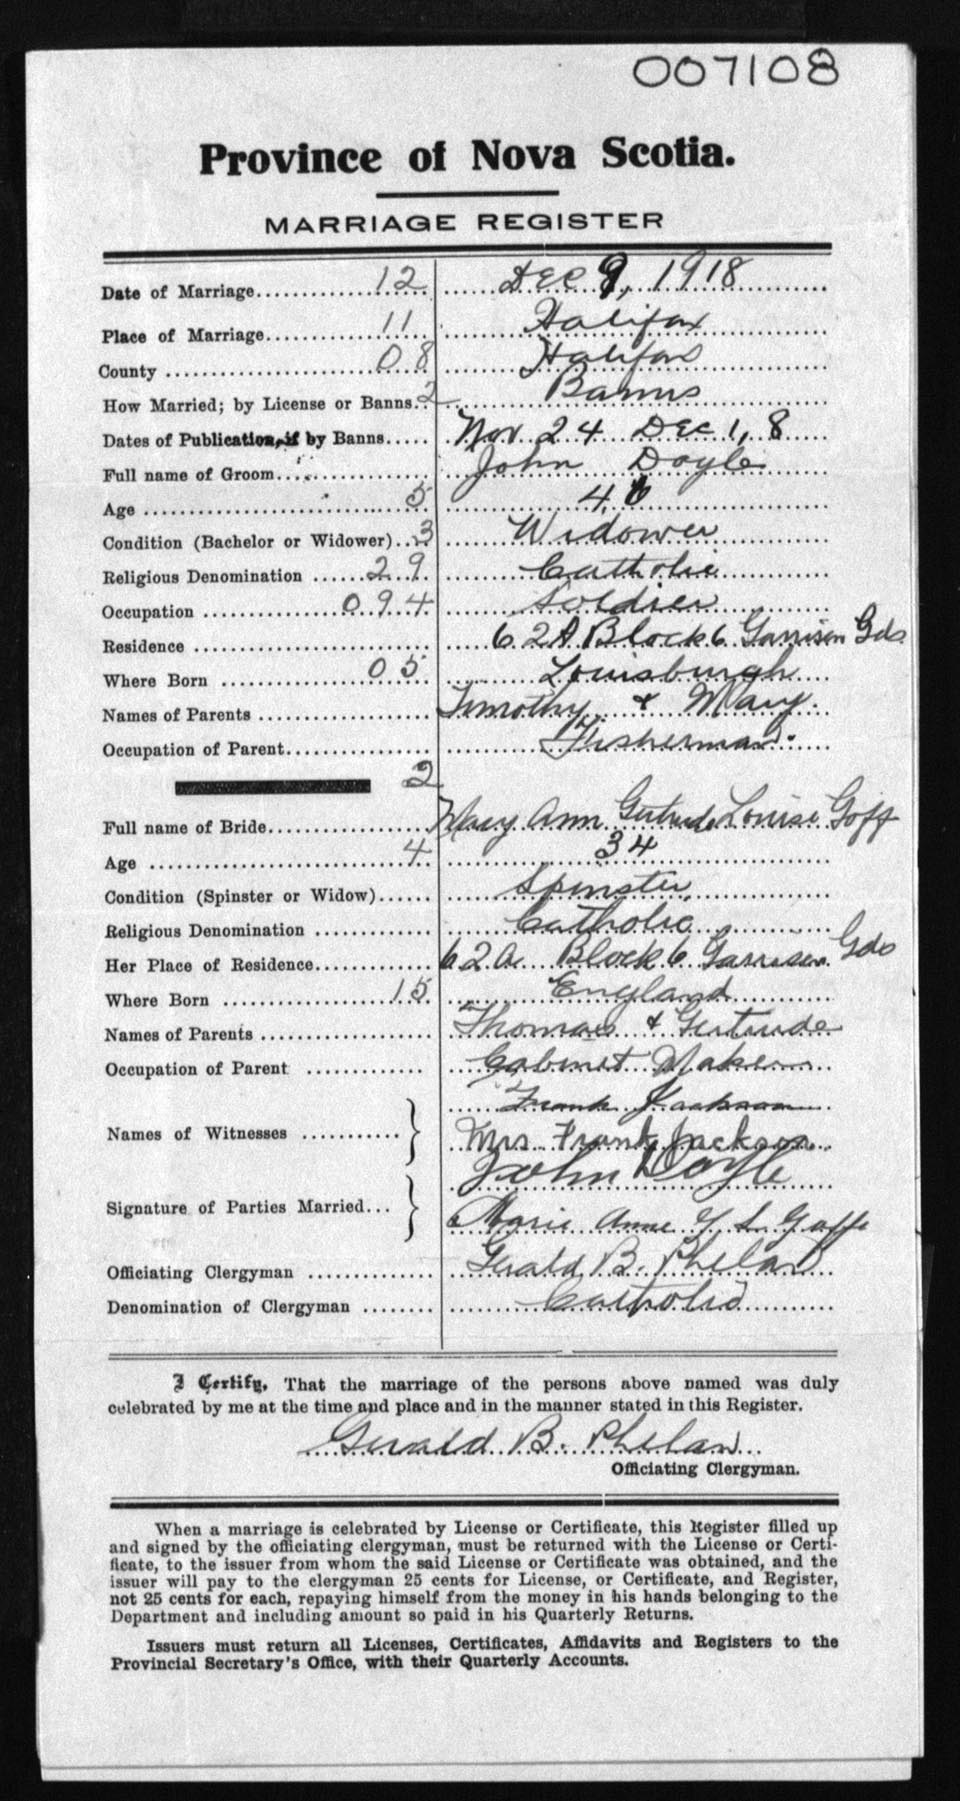 007108
Province of Nova Scotia.
MARRIAGE REGISTER
Date of Marriage 12 Dec 9, 1918
Place of Marriage 11 Halifax
County 08 Halifax
How Married; by License or Banns 2 Banns
Dates of Publication, if by Banns Nov 24 Dec 1, 8
Full name of Groom John Doyle
Age 5 46
Condition (Bachelor or Widower) 3 Widower
Religious Denomination 29 Catholic
Occupation 094 Soldier
Residence 62A Block 6 Garrison Gds
Where Born 05 Louisburgh
Names of Parents Timothy & Mary
Occupation of Parent Fisherman.
2
Full name of Bride Mary Ann Gertrude Louise Goff
Age 4 34
Condition (Spinster or Widow) Spinster
Religious Denomination Catholic
Her Place of Residence 62a Block 6 Garrison Gds
Where Born 15 England
Names of Parents Thomas & Gertrude
Occupation of Parent Cabinet Maker
Frank Jackson
Names of Witnesses Mrs. Frank Jackson
John Doyle
Signature of Parties Married Marie Anne G L Goffe
Officiating Clergyman Gerald B. Phelan
Denomination of Clergyman Catholic
I Certify, That the marriage of the persons above named was duly
celebrated by me at the time and place and in the manner stated in this Register.
Gerald B. Phelan
Officiating Clergyman.
When a marriage is celebrated by License or Certificate, this Register filled up
and signed by the officiating clergyman, must be returned with the License or Certi-
ficate, to the issuer from whom the said License or Certificate was obtained, and the
issuer will pay to the clergyman 25 cents for License, or Certificate, and Register,
not 25 cents for each, repaying himself from the money in his hands belonging to the
Department and including amount so paid in his Quarterly Returns.
Issuers must return all Licenses, Certificates, Affidavits and Registers to the
Provincial Secretary's Office, with their Quarterly Accounts.